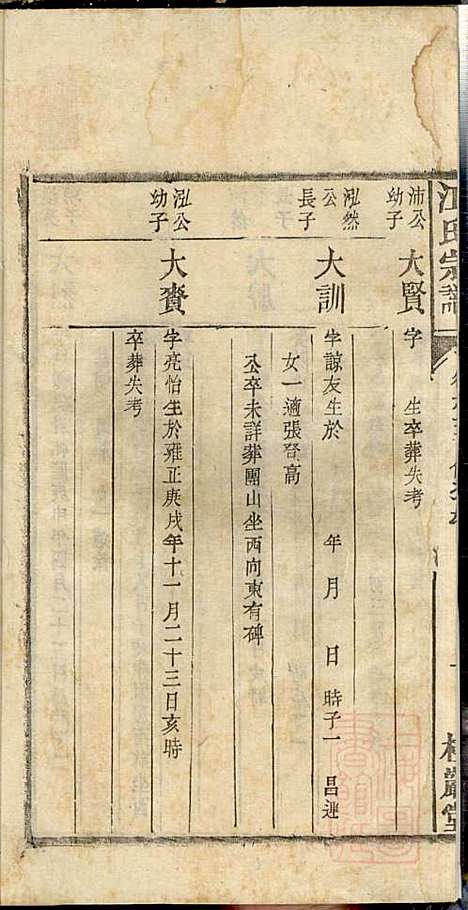 江氏宗譜
沛公
幼子
大賢
字　生卒葬失考
泓然
公
長子
大訓
字諒友生於　年　月　日　時子一　昌遊
女一適張登高
公卒未詳葬團山坐西向東有碑
泓公
幼子
大賚
字亮怡生於雍正庚戌年十一月二十三日亥時
卒葬失考